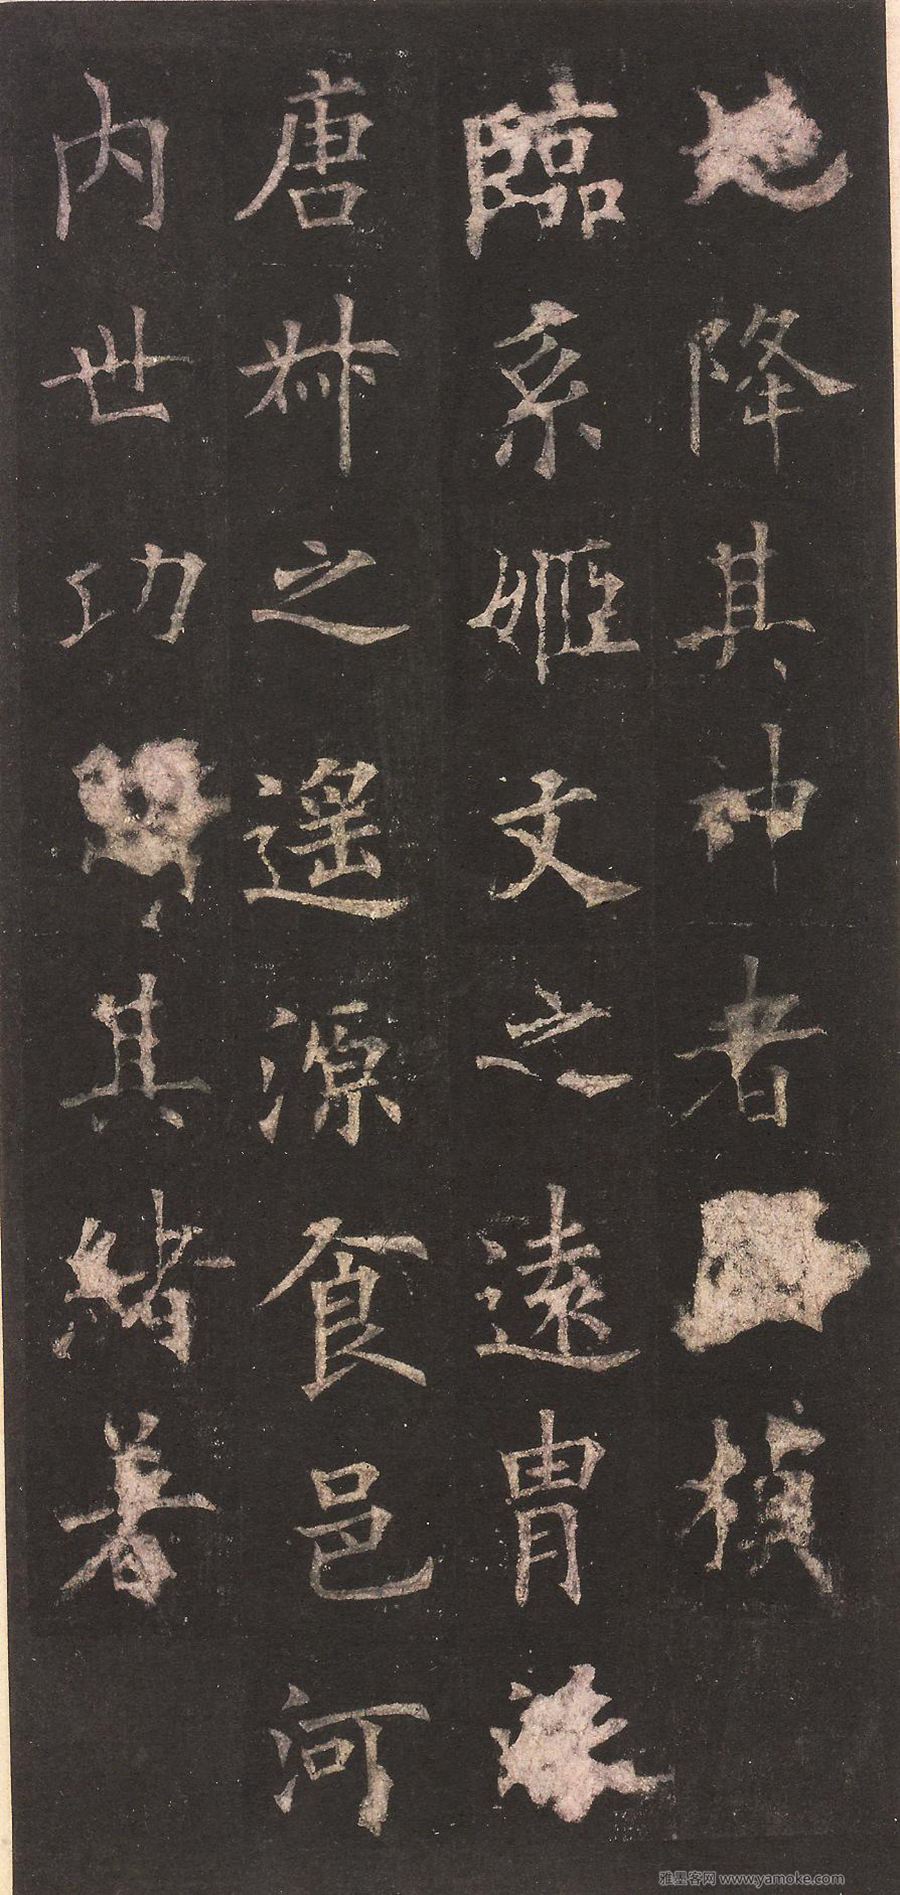 地降其神者□植
臨系姬文之遠冑派
唐叔之遥源食邑河
内世功□其緒著
雅墨客网 www.yamoke.com